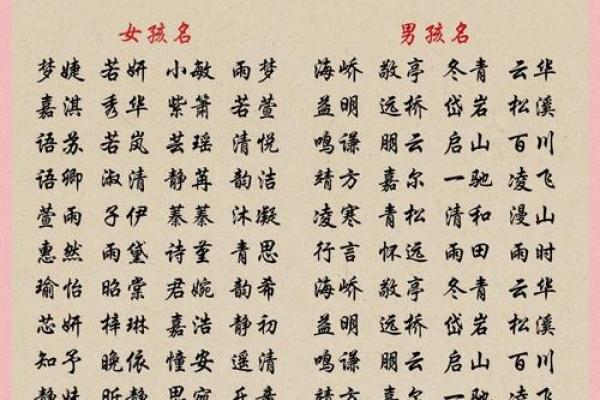 女孩名 男孩名
梦婕 若妍 小敏 雨梦 海峤 敬亭 冬青 云华
嘉淇 秀华 紫箫 若萱 益明 远桥 岱岩 松溪
语苏 若岚 芸瑶 清悦 鸣谦 朋云 启山 百川
语卿 淑清 静苒 韵洁 靖方 嘉尔 一驰 凌飞
萱雨 子伊 蓁蓁 沐凝 凌寒 青松 清和 漫山
惠然 雨黛 诗堇 青思 行言 怀远 雨田 雨时
瑜怡 昭棠 君婉 韵希 海峤 敬亭 冬青 云华
芯妍 梓琳 嘉浩 静初 益明 远桥 岱岩 松溪
知予 晚依 憧安 遥清 鸣谦 朋云 启山 百川
静姝 昕静 思宛 靖方 嘉尔 一驰 凌飞